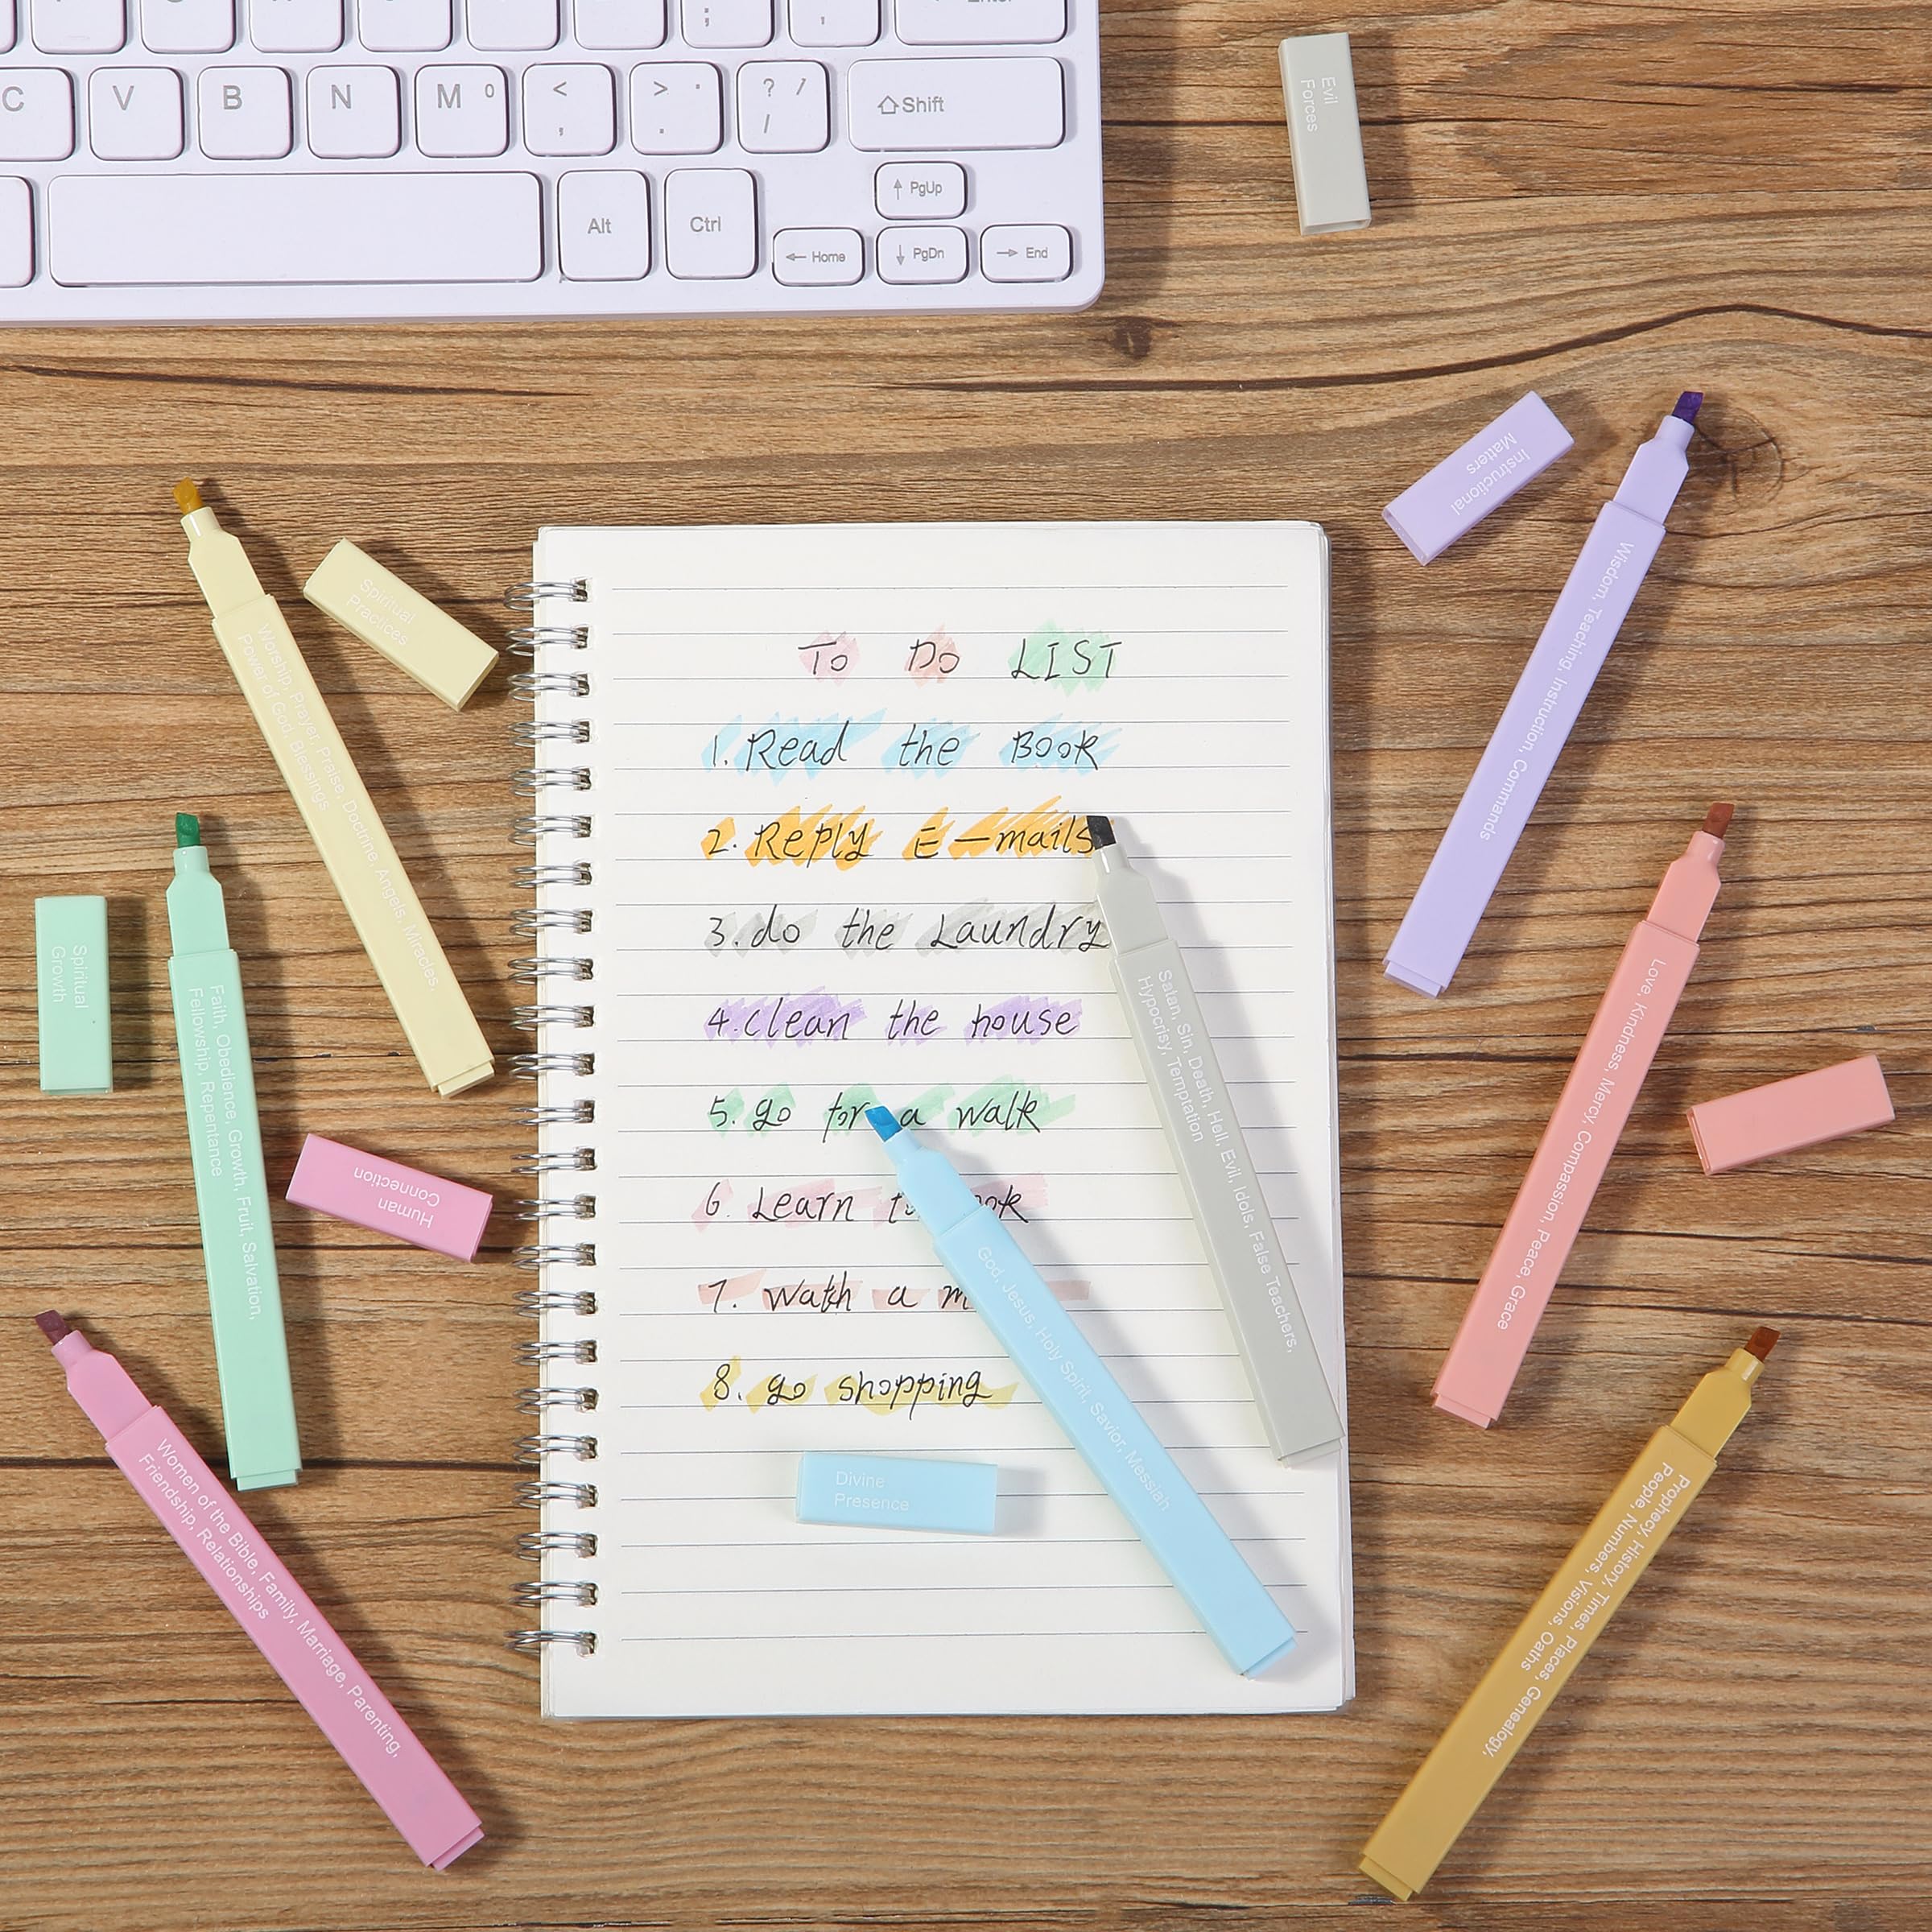 Enter
;
,
C V B N M 0 < , > . ? / Shift
Alt Ctrl
PgUp
Home PgDn End
Evil
Forces
Instructional
Matters
Wisdom, Teaching, Instruction, Commands
Spiritual
Practices
Worship, Prayer, Praise, Doctrine, Angels, Miracles,
Power of God, Blessings
TO DO LIST
1. Read the Book
2. Reply E-mails
3. do the Laundry
4. clean the house
5. go for a walk
6. Learn
7. Watch a
8. go shopping
Satan, Sin, Death, Hell, Evil, Idols, False Teachers,
Hypocrisy, Temptation
God, Jesus, Holy Spirit, Savior, Messiah
Divine
Presence
Spiritual
Growth
Faith, Obedience, Growth, Fruit, Salvation,
Fellowship, Repentance
Human
Connection
Women of the Bible, Family, Marriage, Parenting,
Friendship, Relationships
Love, Kindness, Mercy, Compassion, Peace, Grace
Prophecy, History, Times, Places, Genealogy,
People, Numbers, Visions, Oaths